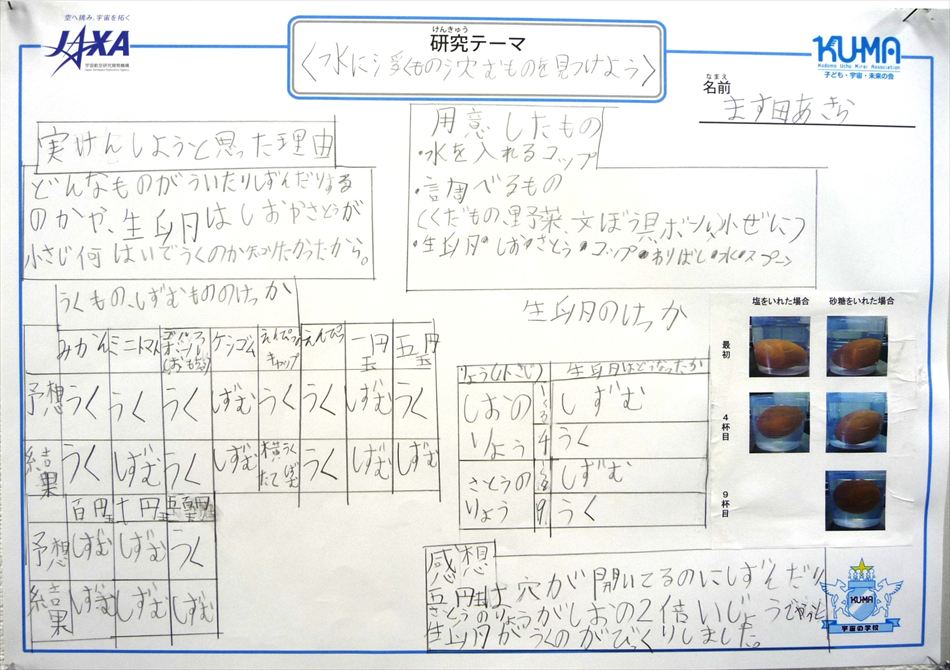 空へ挑み、宇宙を拓く
JAXA
宇宙航空研究開発機構
Japan Aerospace Exploration Agency
けんきゅう
研究テーマ
〈水に浮くもの沈むものを見つけよう〉
KU-MA
Kodomo Uchu Mirai Association
子ども・宇宙・未来の会
なまえ
名前
ます田あきら
実けんしようと思った理由
どんなものがういたりしずんだりする
のかや、生卵はしおやさとうが
小さじ何はいでうくのか知りたかったから。
用意したもの
・水を入れるコップ
・調べるもの
(くだもの、野菜、文ぼう具、ボール、小ぜに)
・生卵・しお・さとう・コップ・わりばし・水・スプーン
うくもの、しずむもののけっか
みかん ミニトマト ボール(おもちゃ) ケシゴム えんぴつキャップ えんぴつ 一円玉 五円玉
予想 うく うく うく しずむ うく うく しずむ うく
結果 うく しずむ うく しずむ 横うくたてしずむ うく しずむ しずむ
百円玉 十円玉 五百円玉
予想 しずむ しずむ うく
結果 しずむ しずむ しずむ
生卵のけっか
りょう(小さじ) 生卵はどうなったか
しおのりょう 1〜3 しずむ
4 うく
さとうのりょう 1〜8 しずむ
9 うく
塩をいれた場合 砂糖をいれた場合
最初
4杯目
9杯目
感想
五円玉は穴が開いてるのにしずんだり
さとうのりょうがしおの2倍いじょうでやっと
生卵がうくのがびっくりしました。
KU-MA
宇宙の学校